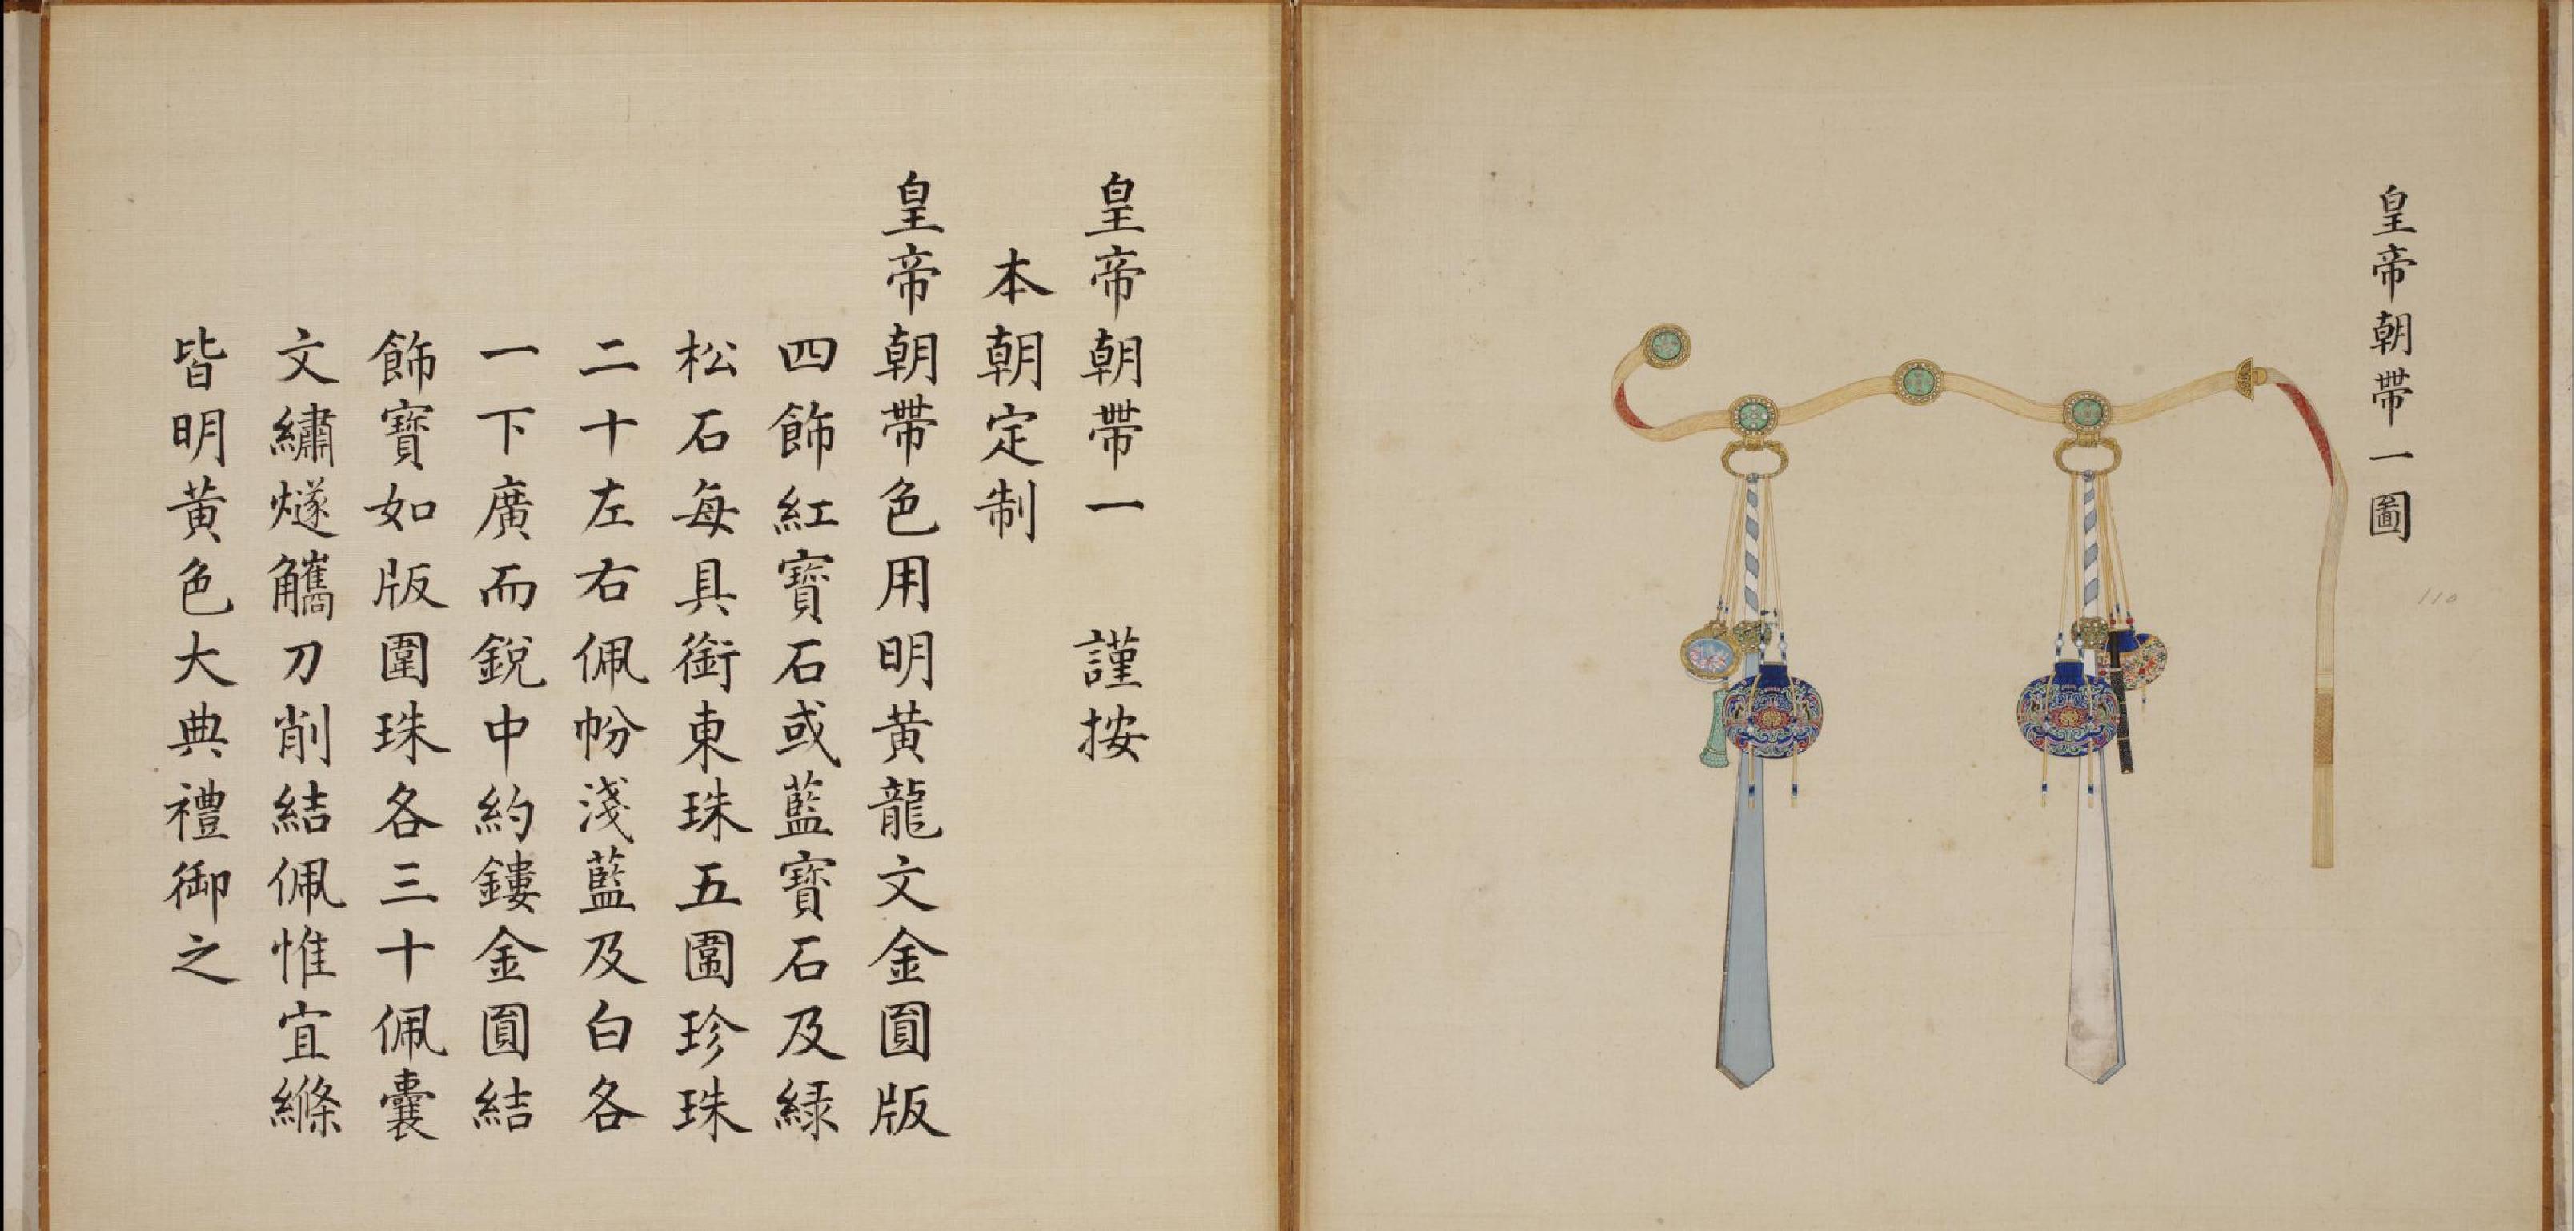 皇帝朝帶一圖
110
皇帝朝帶一 謹按
本朝定制
皇帝朝帶色用明黃龍文金圓版
四飾紅寶石或藍寶石及緑
松石每具銜東珠五圍珍珠
二十左右佩帉淺藍及白各
一下廣而銳中約鏤金圓結
飾寶如版圍珠各三十佩囊
文繡燧觿刀削結佩惟宜縧
皆明黃色大典禮御之